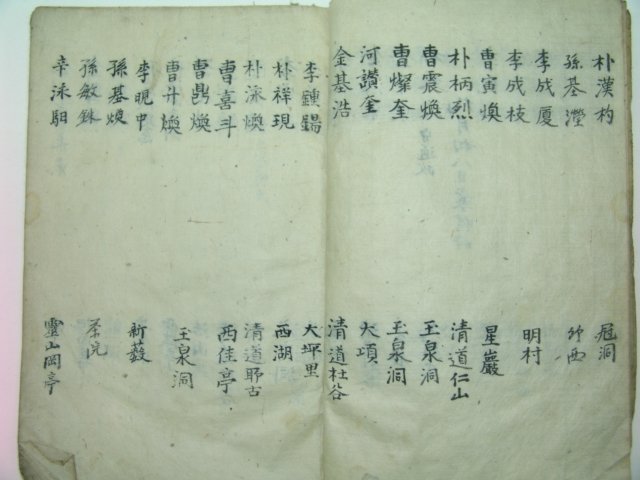 朴漢杓 冠洞
孫基瀅 竹西
李成厦 明村
李成枝
曺寅煥 星巖
朴柄烈 清道仁山
曺震煥 玉泉洞
曺燦奎 玉泉洞
河讚奎 大項
金基浩 清道杜谷
李鍾錫 大坪里
朴祥現 西湖
朴泳煥 清道耶古
曺喜斗 西佳亭
曺鼎煥
曺升煥 玉泉洞
李晛中
孫基煥 新藪
孫敏銖
辛泳馹 靈山岡亭